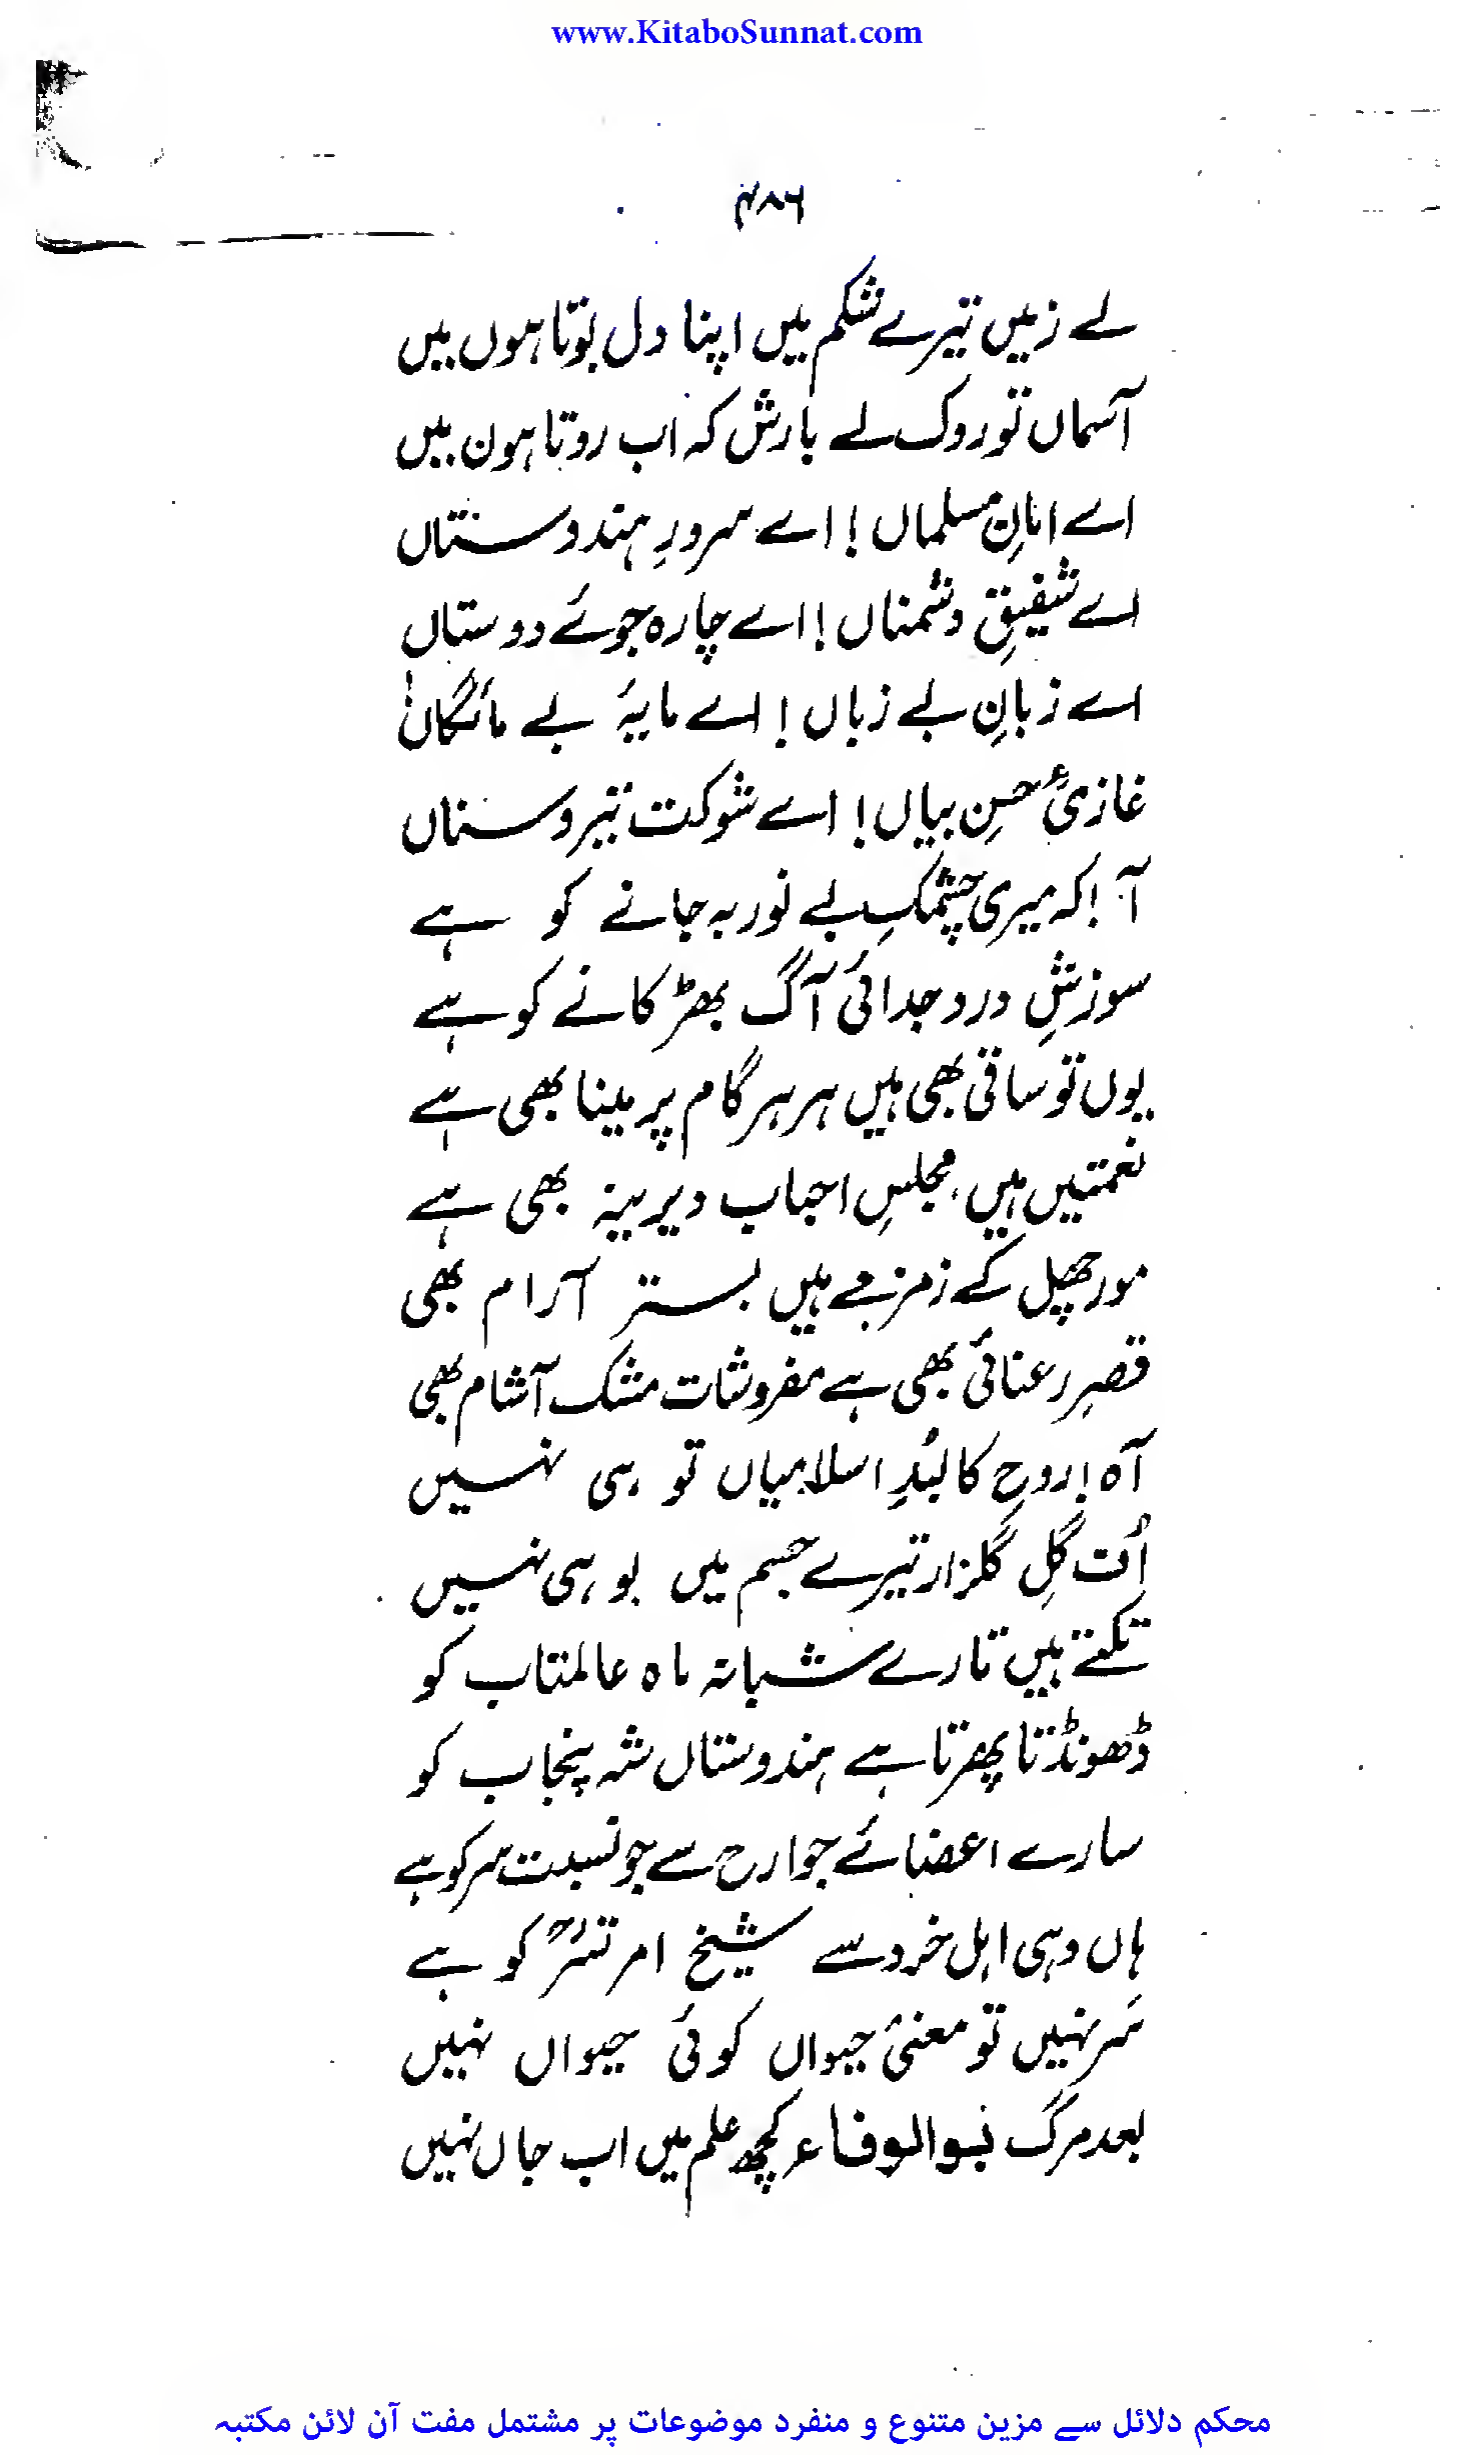 www.KitaboSunnat.com
۴۸۶
اے زمیں تیرے شکم میں اپنا دل بوتا ہوں میں
آسماں تو روک لے بارش کہ اب روتا ہوں میں
اے امانِ مسلماں! اے سرورِ ہندوستاں
اے شفیقِ دشمناں! اے چارہ جوئے دوستاں
اے زبانِ بے زباں! اے مایۂ بے مائگاں
غازئ حسنِ بیاں! اے شوکت تیر و سناں
آ! کہ میری چشمکِ بے نور بہ جانے کو ہے
سوزشِ درد جدائی آگ بھڑکانے کو ہے
یوں تو ساقی بھی ہیں ہر ہر گام پر مینا بھی ہے
نعمتیں ہیں، مجلسِ احباب دیرینہ بھی ہے
مورچھل کے زمزمے ہیں بستر آرام بھی
قصرِ رعنائی بھی ہے مفروشات مشک آشام بھی
آہ! روحِ کالبُدِ اسلامیاں تو ہی نہیں
اُف گلِ گلزار تیرے جسم میں بو ہی نہیں
تکتے ہیں تارے شبانہ ماہ عالمتاب کو
ڈھونڈتا پھرتا ہے ہندوستاں شہ پنجاب کو
سارے اعضائے جوارح سے جو نسبت سر کو ہے
ہاں وہی اہل خرد سے شیخ امرتسرؒ کو ہے
سَر نہیں تو معنئ حیواں کوئی حیواں نہیں
بعد مرگ بوالوفاء کچھ علم میں اب جاں نہیں
محکم دلائل سے مزین متنوع و منفرد موضوعات پر مشتمل مفت آن لائن مکتبہ